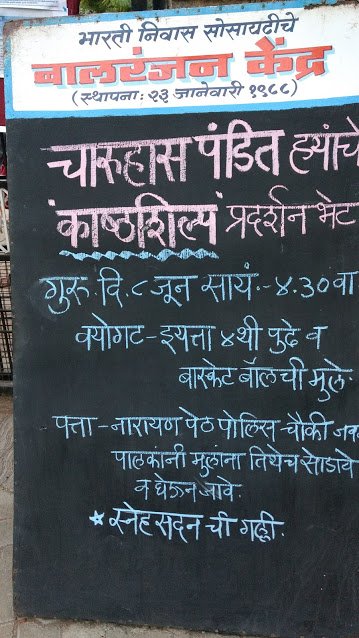 भारती निवास सोसायटीचे
बालरंजन केंद्र
(स्थापना: २३ जानेवारी १९८८)
चारुहास पंडित ह्यांचे
'काष्ठशिल्प' प्रदर्शन भेट
गुरु. दि. ८ जून सायं.- ४.३० वा
वयोगट - इयत्ता ४थी पुढे व
बास्केट बॉल ची मुले
पत्ता - नारायण पेठ पोलिस चौकी जव
पालकांनी मुलांना तिथेच सोडावे
व घेऊन जावे.
* स्नेह सदन ची गल्ली.